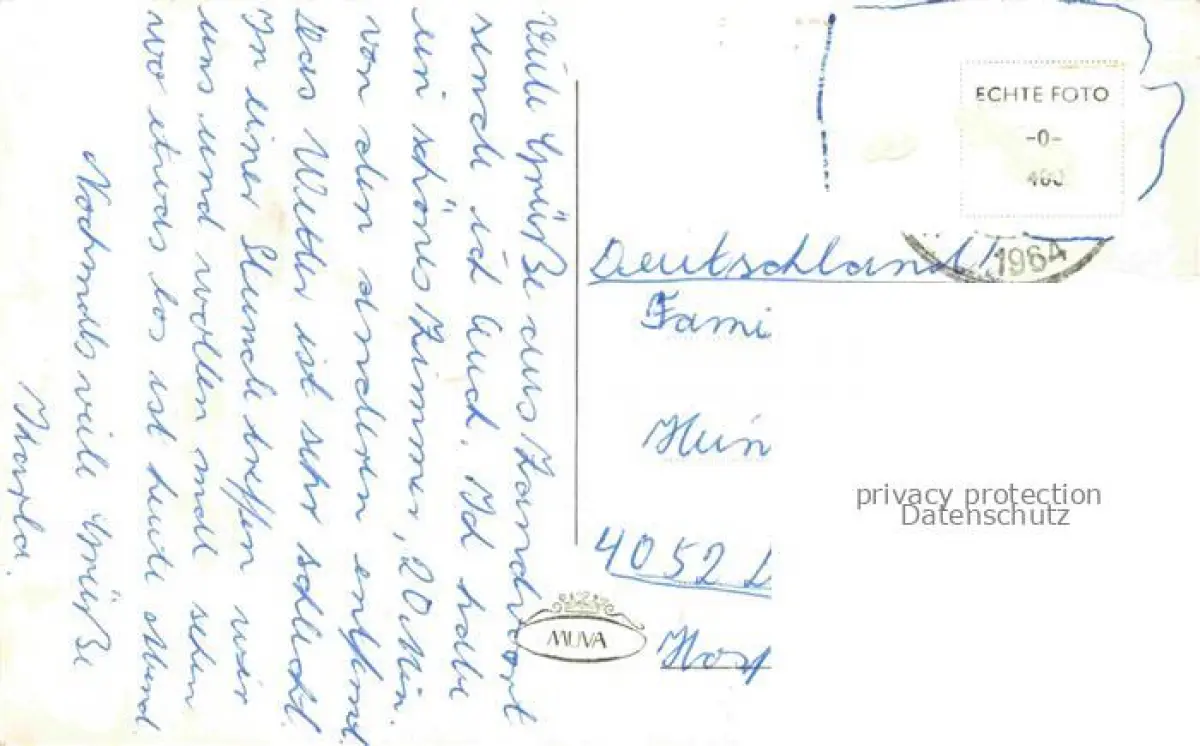 Viele Grüße aus Zandvoort
sende ich Euch. Ich habe
ein schönes Zimmer, 20 Min.
von den anderen entfernt.
Das Wetter ist sehr schlecht.
In einer Stunde treffen wir
uns und wollen mal sehen
wo etwas los ist heute Abend.
Nochmals viele Grüße
ECHTE FOTO
-0-
1964
Deutschland!
Fami
Hein
4052 L
privacy protection
Datenschutz
MUVA